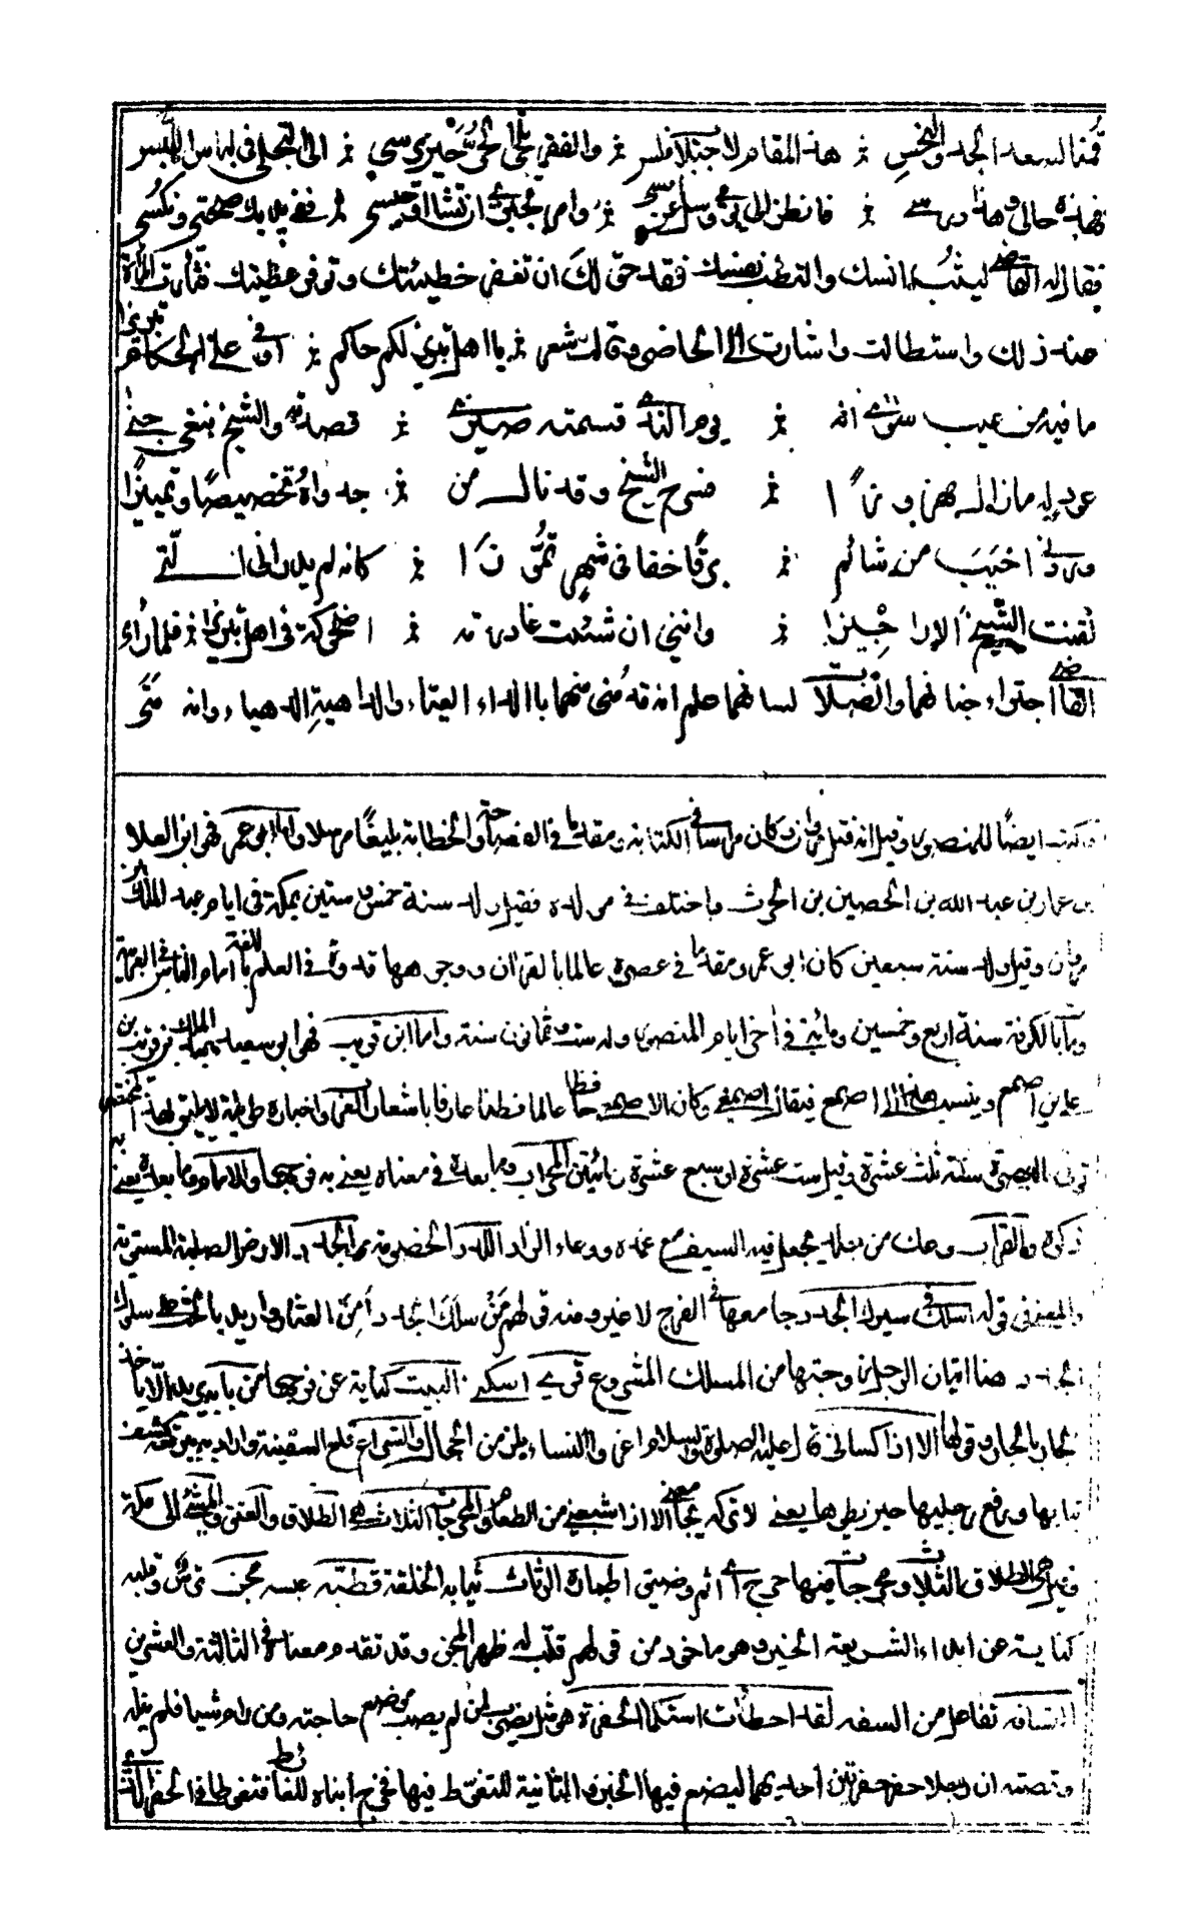 قمنا لسعد الجد والنحس ؞ هذا المقام لاجتلاب فلس ؞ والفقر يلجي الحر حين يرسي ؞ الى التجلي في لباس اللبس
فهذه حالي وهذا درسي ؞ فانظر الى يومي وسل عن امسي ؞ وامر بجبري ان تشا او حبسي ؞ ففي يديك صحتي ونكسي
فقال له القاضي ليثب انسك ولتطب نفسك فقد حق لك ان تغفر خطيئتك وتوفر عطيتك فثارت المرأة
عند ذلك واستطالت واشارت الى الحاضرين وقالت شعر ؞ يا اهل تبريز لكم حاكم ؞ اوفى على الحكام تبريزا
ما فيه من عيب سوى انه ؞ يوم الندى قسمته ضيزى ؞ قصدته والشيخ نبغي جنى
عود له ما زال مهزوزا ؞ فسرح الشيخ وقد نال من ؞ جدواه تخصيصا وتمييزا
وردني اخيب من شائم ؞ برقا خفا في شهر تموزا ؞ كانه لم يدر اني التي
لقنت الشيخ الاراجيزا ؞ وانني ان شئت غادرته ؞ اضحوكة في اهل تبريزا ؞ فلما راء
القاضي اجتراء جنانهما وانصلات لسانهما علم انه قد مني منهما بالداء العياء والداهية الدهياء وانه متى
ايضا للمنصور وقيل انه قتل وكان راسا في الكتابة ومقدما في الفصاحة والخطابة بليغا مرسلا واما ابو عمرو فهو ابن العلا
بن عمار بن عبد الله بن الحصين بن الحرث واختلف في مولده فقيل ولد سنة خمس وستين بمكة في ايام عبد الملك بن
مروان وقيل ولد سنة سبعين كان ابو عمرو مقدما في عصره عالما بالقران ووجوهها قدوة في العلم باللغة امام الناس في العربية
ومات بالكوفة سنة اربع وخمسين ومائة في اخر ايام المنصور وله ست وثمانون سنة واما ابن قريب فهو ابو سعيد عبد الملك بن قريب بن
علي بن اصمع وينسب هذا الى اصمع فيقال اصمعي وكان الاصمعي حافظا عالما فطنا عارفا باشعار العرب واخبارها
توفي بالبصرة سنة ثلث عشرة وقيل ست عشرة او سبع عشرة ومائتين المحراب وما بعده في معناه يعني به فرجها والامام وما بعده يعني به
ذكره والقراب وعاء من جلد يجعل فيه السيف مع غمده ووعاء الزاد اللدد الخصومة الجدد الارض الصلبة المستوية
والمعنى في قوله اسلك في سيرك الجدد جامعها في الفرج لا غير ومنه قولهم من سلك الجدد امن العثار
هنا اتيان الرجل زوجتها من المسلك المشروع قوله اسكن البيت كناية عن فرجها
الجار بالجار وقولها الا اذا كساني قال عليه الصلوة والسلام اعروا النساء يلزمن الحجال والشراع قلع السفينة
ثيابها ورفع رجليها حين يطؤها يعني لا تتركه يجامعني الا اذا اشبعني من الطعام والمحرجات الثلاث هي الطلاق والعتق والمشي الى مكة
وقيل هي الطلاق الثلاث ومحرجات فيها حرج اي اثم وضيق اطماره الرثاث ثيابه الخلقة قطب عبس مجن ترس وقلبه
كناية عن ابداء الشر بعد الخير وهو ماخوذ من قولهم قلب له ظهر المجن وقد تقدم معناه في الثالثة والعشرين
التسافه تفاعل من السفه لقد اخطأت استك الحفرة هو مثل يضرب لمن لم يصب موضع حاجته ومن رام شيا فلم ينله
وقصته ان رجلا حفر حفرتين احديهما ليضع فيها الخبز والثانية للتغوط فيها فخرج ابناه للغائط فتغوطا في الحفرة التي